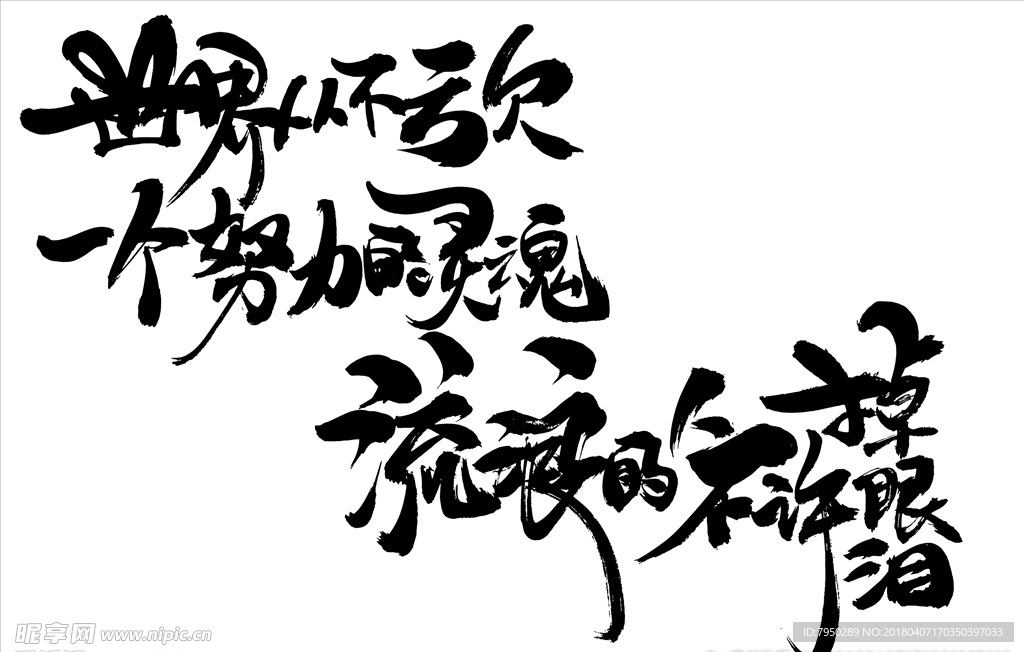 世界从不亏欠
一个努力的灵魂
流浪的人不许掉眼泪
昵享网 www.nipic.cn
ID:7950289 NO:20180407170350397033